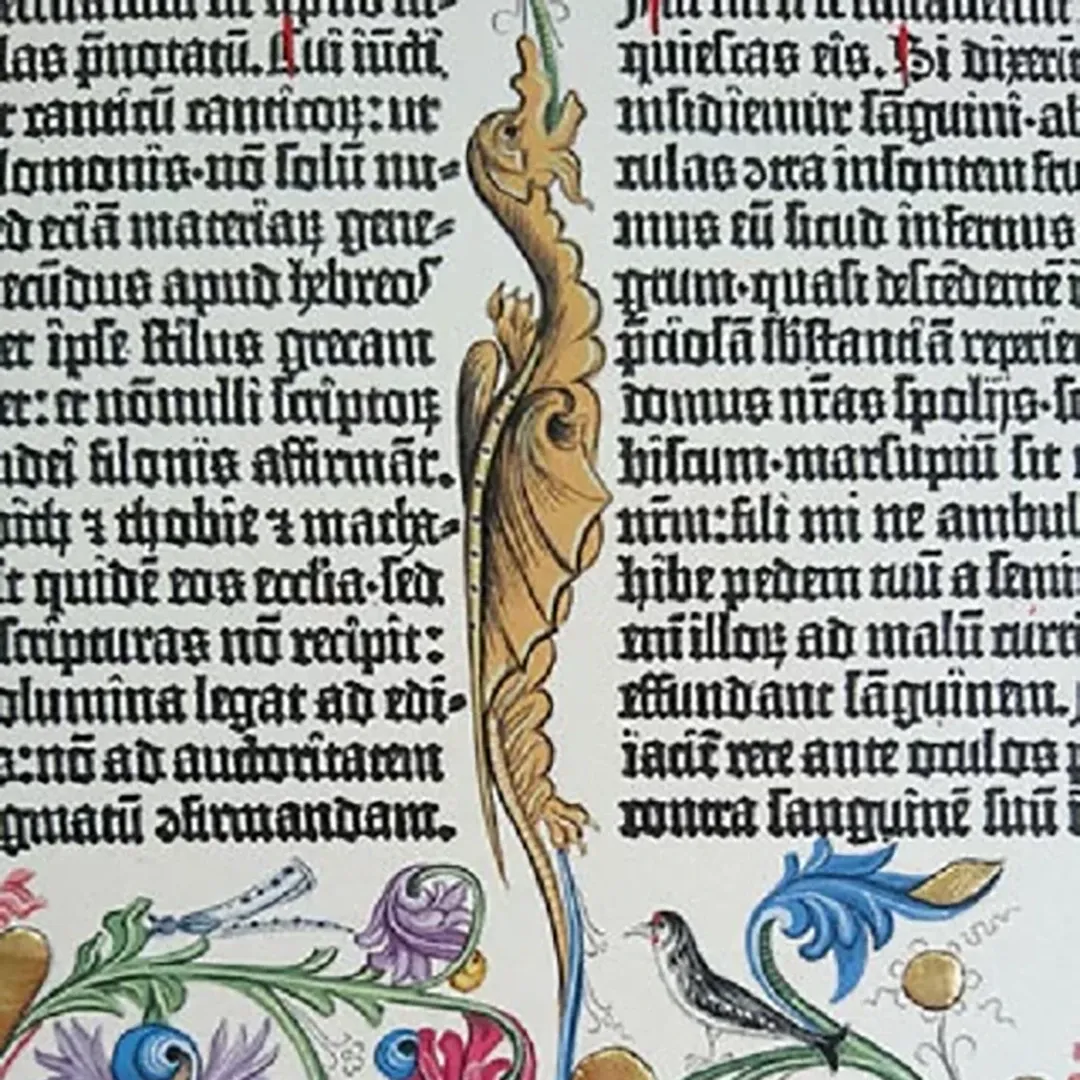 las p̄notatū. Qui iūcti
canticū canticoꝝ: ut
lomonis·nō solū nu⸗
ed eciā materiaꝝ gene⸗
ecūdus apud hebreos
et ipse stilus grecam
et: et nōnulli scriptoꝝ
udei filonis affirmāt.
dith ⁊ thobie ⁊ macha⸗
it quidē eos ecclīa·sed
scripturas nō recipit:
olumina legat ad edi⸗
s: nō ad auctoritatem
gmatū ꝯfirmandam.
quiescas eis. Si dixerin
insidiemur sāguini·ab
culas ꝯtra insontem fru
mus eū sicud infernus
grum·quasi descēdentē i
p̄ciosā sb̄stantiā reperie
domus nr̄as spolijs·so
biscum·marsupiū sit
nr̄m: fili mi ne ambul
hibe pedem tuū a semi
em̄ illoꝝ ad malū curr
effundant sāguinem.
iacit̄ rete ante oculos p
contra sanguinē suū i